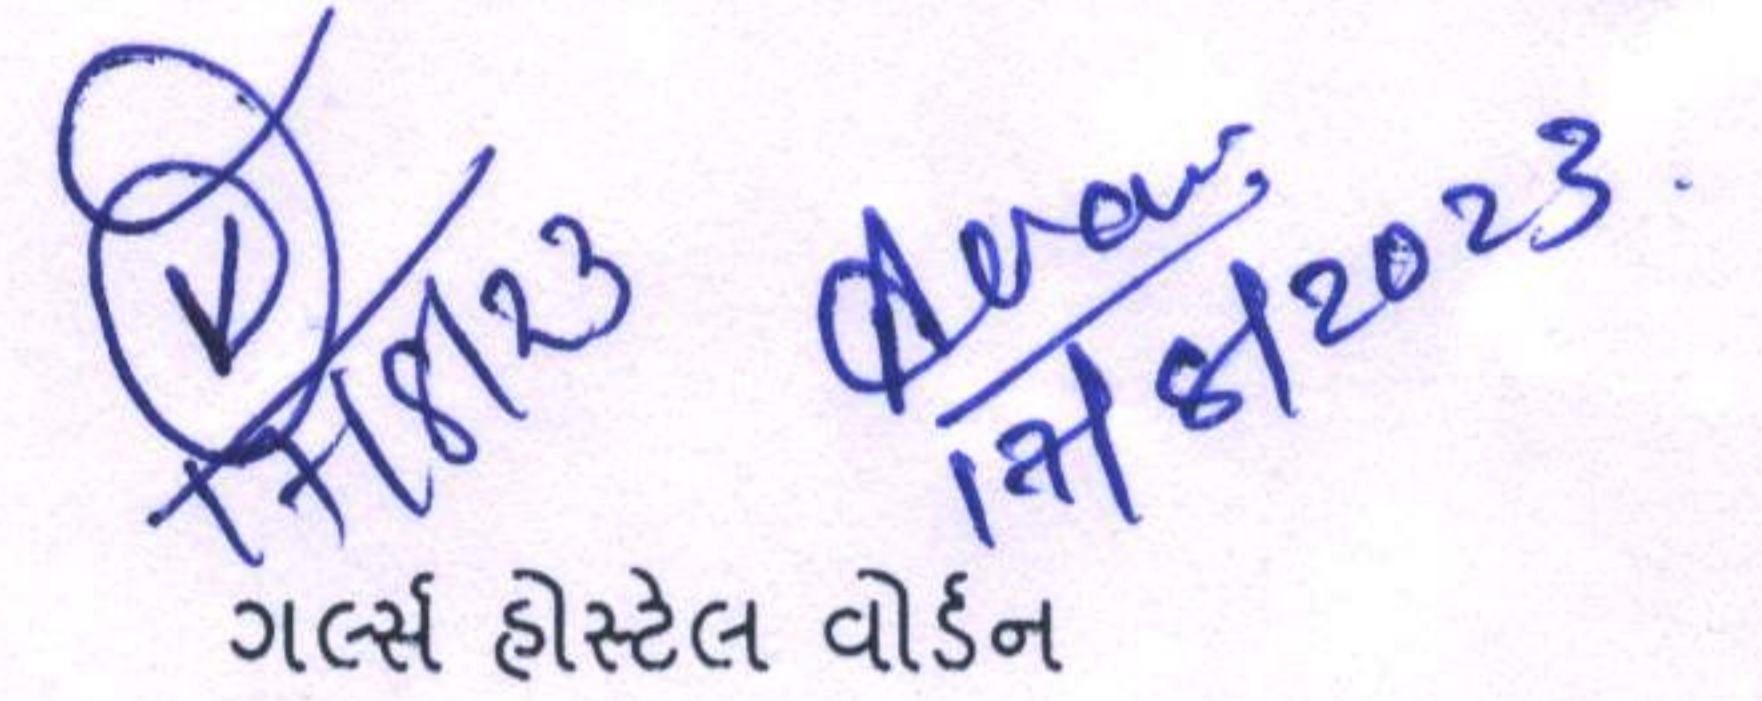 17/8/23
17/8/2023
ગર્લ્સ હોસ્ટેલ વોર્ડન